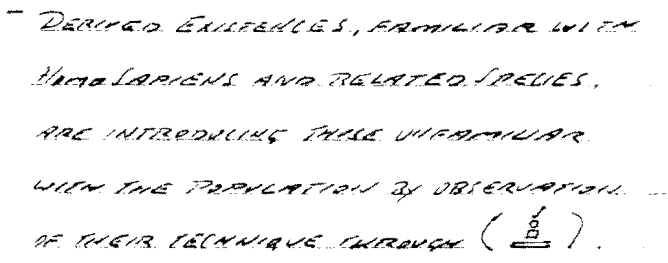 - DERIVED EXISTENCES, FAMILIAR WITH
HOMO SAPIENS AND RELATED SPECIES,
ARE INTRODUCING THOSE UNFAMILIAR
WITH THE POPULATION BY OBSERVATION
OF THEIR TECHNIQUE THROUGH ( ).